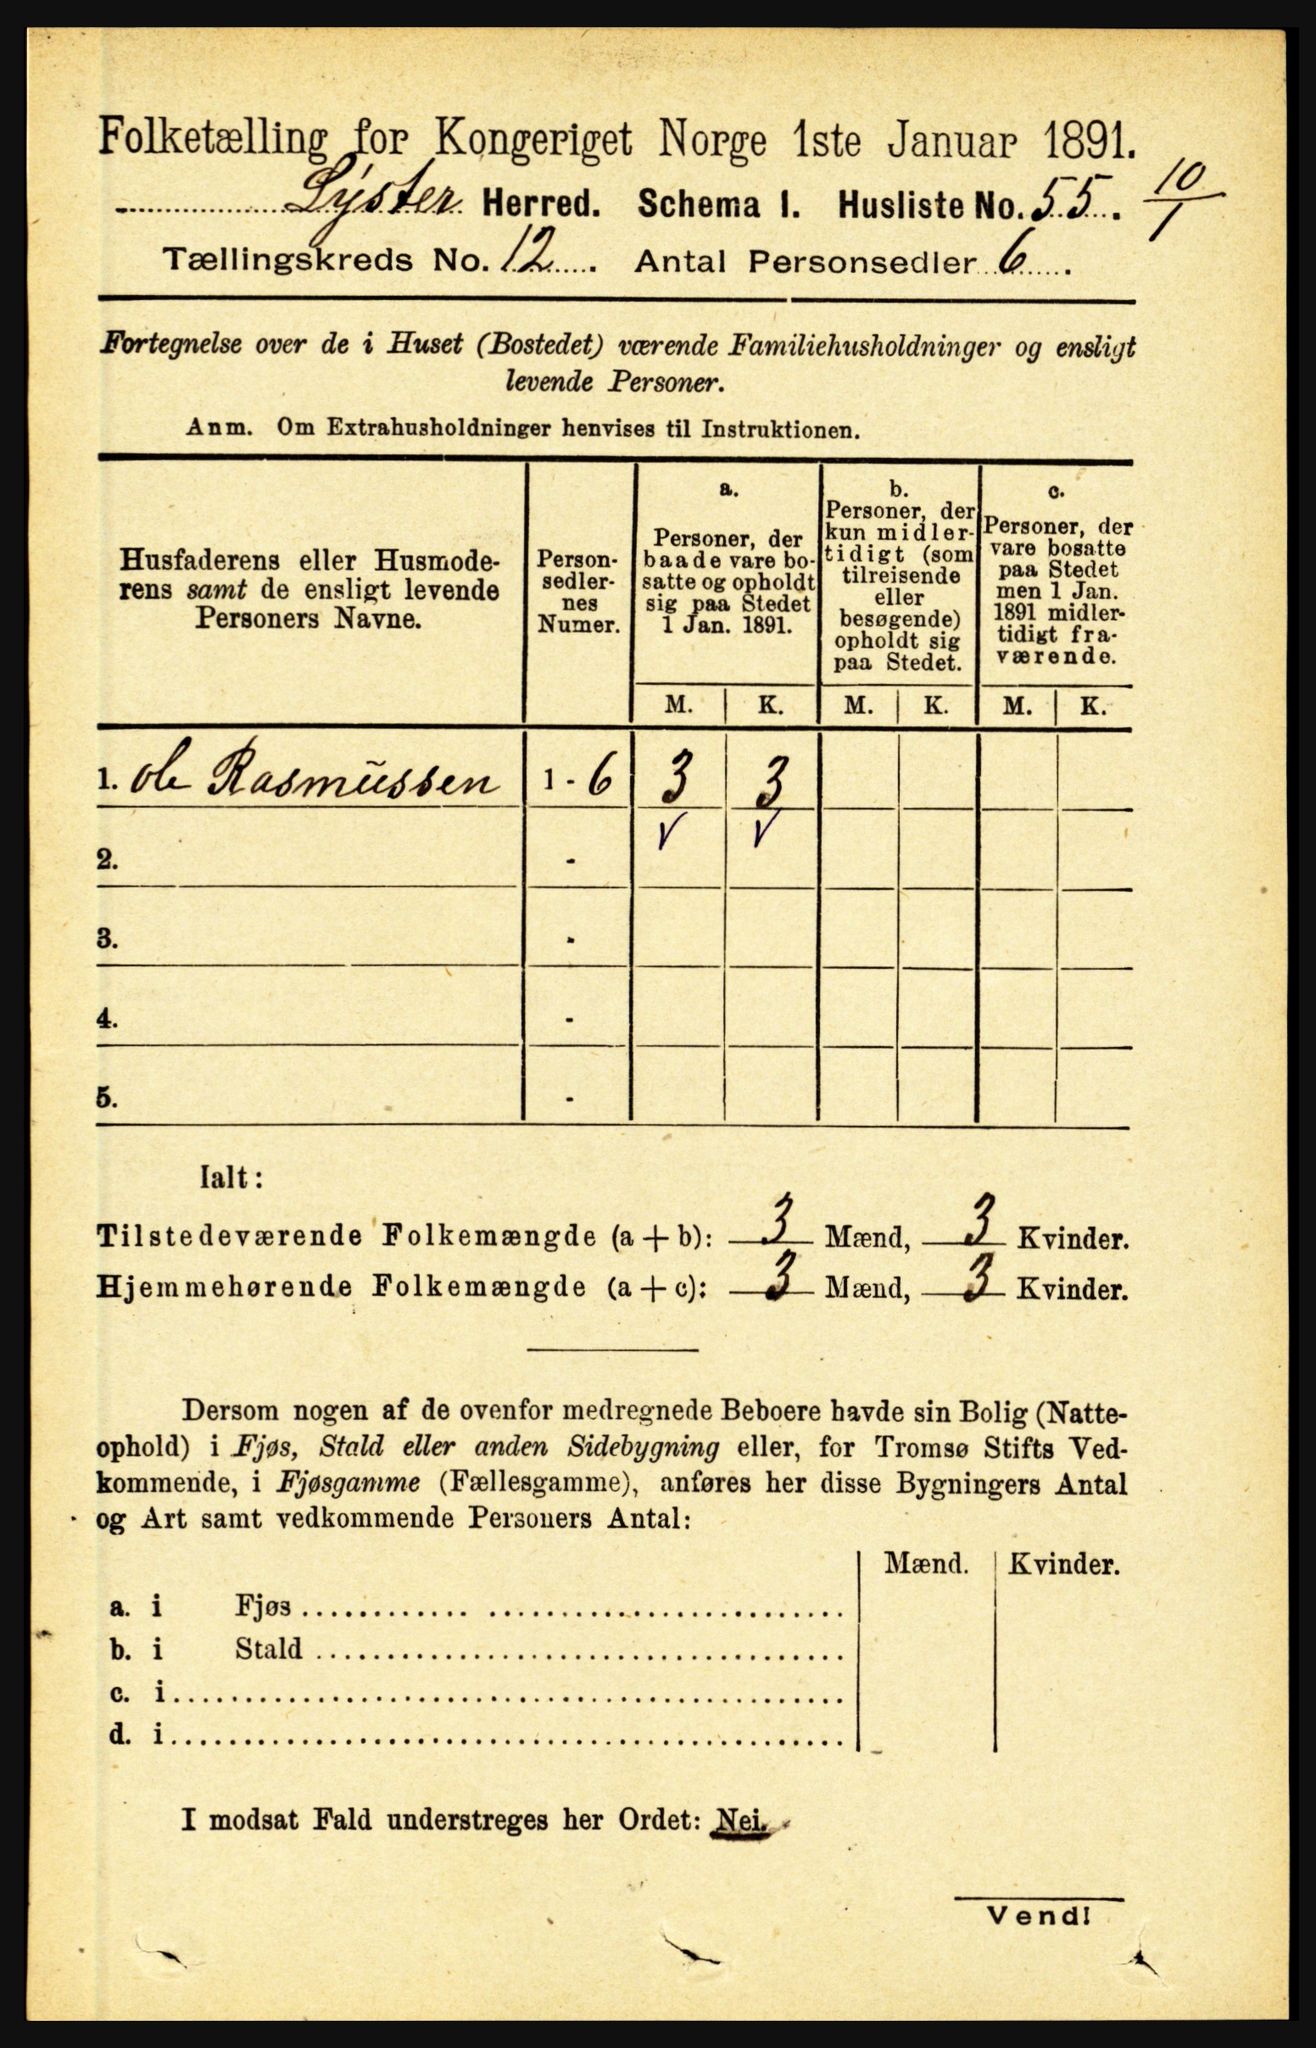 Folketælling for Kongeriget Norge 1ste Januar 1891.
Lyster Herred. Schema I. Husliste No. 55. 10/1
Tællingskreds No. 12. Antal Personsedler 6.
Fortegnelse over de i Huset (Bostedet) værende Familiehusholdninger og ensligt
levende Personer.
Anm. Om Extrahusholdninger henvises til Instruktionen.
Husfaderens eller Husmode-
rens samt de ensligt levende
Personers Navne.
Person-
sedler-
nes
Numer.
a.
Personer, der
baade vare bo-
satte og opholdt
sig paa Stedet
1 Jan. 1891.
b.
Personer, der
kun midler-
tidigt (som
tilreisende
eller
besøgende)
opholdt sig
paa Stedet.
c.
Personer, der
vare bosatte
paa Stedet
men 1 Jan.
1891 midler-
tidigt fra-
værende.
M. K. M. K. M. K.
1. Ole Rasmussen 1 - 6 3 3
2. - V V
3. -
4. -
5. -
Ialt:
Tilstedeværende Folkemængde (a + b): 3 Mænd, 3 Kvinder.
Hjemmehørende Folkemængde (a + c): 3 Mænd, 3 Kvinder.
Dersom nogen af de ovenfor medregnede Beboere havde sin Bolig (Natte-
ophold) i Fjøs, Stald eller anden Sidebygning eller, for Tromsø Stifts Ved-
kommende, i Fjøsgamme (Fællesgamme), anføres her disse Bygningers Antal
og Art samt vedkommende Personers Antal:
Mænd. Kvinder.
a. i Fjøs
b. i Stald
c. i
d. i
I modsat Fald understreges her Ordet: Nei.
Vend!